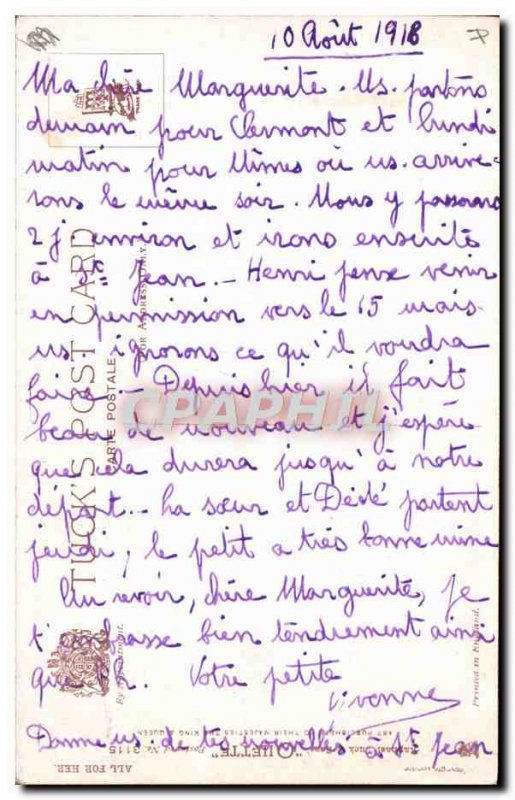 10 Août 1918
Ma chère Marguerite. Ns. partons
demain pour Clermont et lundi
matin pour Nîmes où ns. arrive-
rons le même soir. Nous y passerons
2 j. environ et irons ensuite
à St Jean. - Henri pense venir
en permission vers le 15 mais
ns. ignorons ce qu'il voudra
faire - Depuis hier il fait
beau de nouveau et j'espère
que cela durera jusqu'à notre
départ. - La sœur et Dédé partent
jeudi, le petit a très bonne mine
Au revoir, chère Marguerite, je
t'embrasse bien tendrement ainsi
que
Votre petite
Yvonne
Donne ns. de tes nouvelles à St Jean
TUCK'S POST CARD
CARTE POSTALE
FOR ADDRESS ONLY.
CPAPHIL
By Appointment.
Printed in England.
Raphael Tuck & Sons' "OILETTE" Postcard No. 3115
ART PUBLISHERS TO THEIR MAJESTIES THE KING & QUEEN
ALL FOR HER.